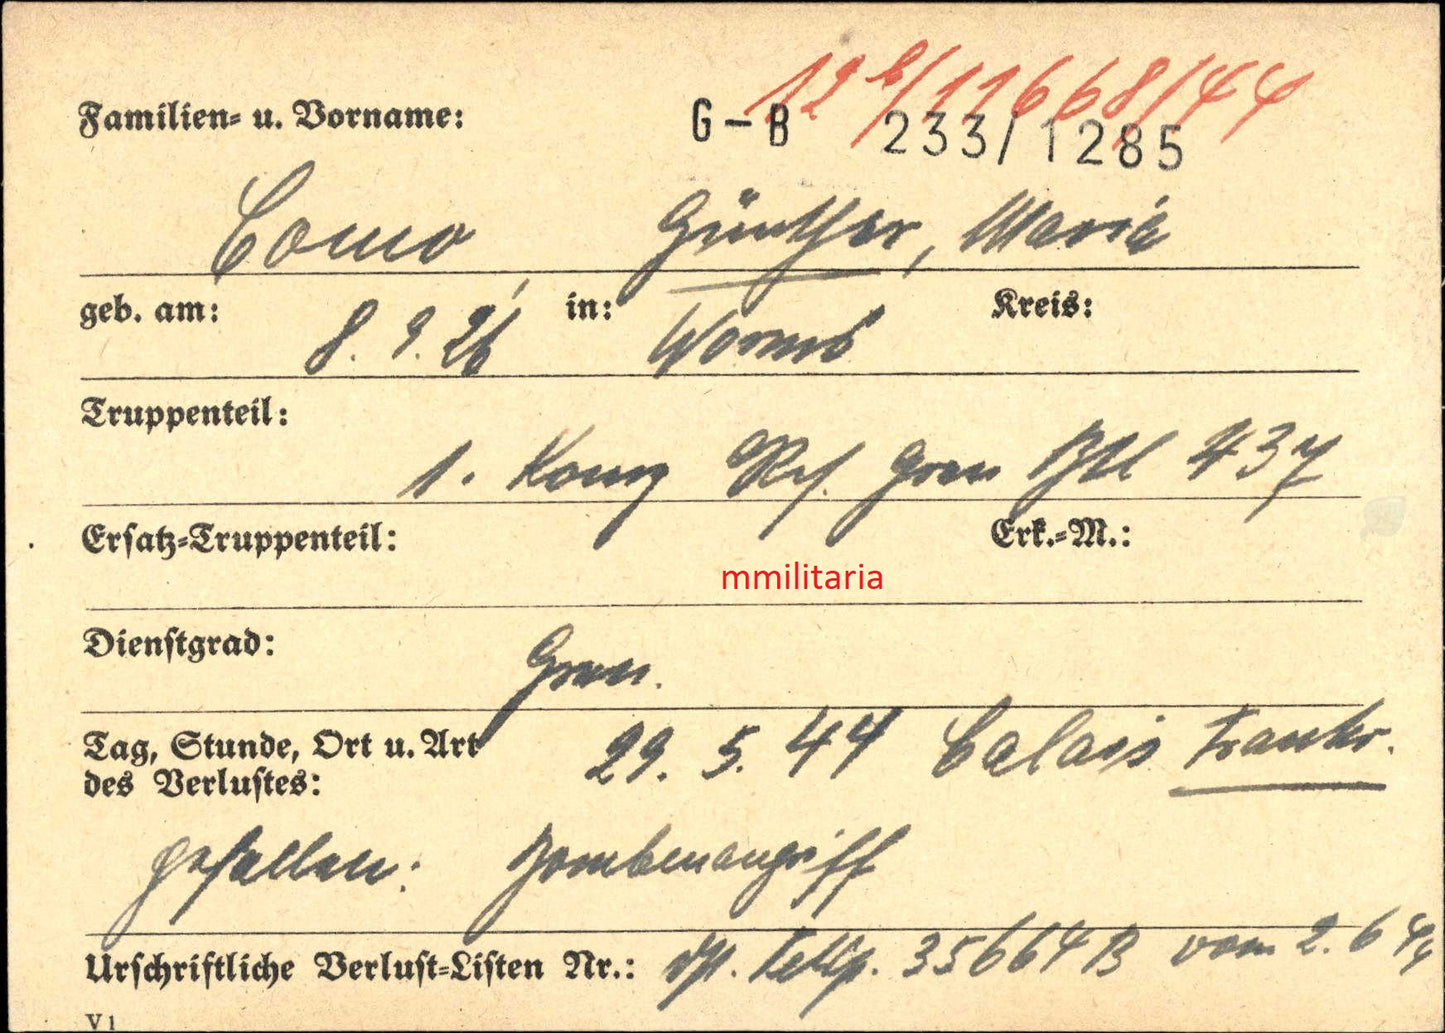 12 /11668/44
Familien- u. Vorname:
G-B 233/1285
Como Günther, Maria
geb. am: 8. 9. 26 in: Worms Kreis:
Truppenteil:
1. Komp Gren Btl 437
Ersatz-Truppenteil: Erk.-M.:
mmilitaria
Dienstgrad: Gren.
Tag, Stunde, Ort u. Art 29. 5. 44 Calais Frankr.
des Verlustes:
gefallen: Bombenangriff
Urschriftliche Verlust-Listen Nr.: 35664 B vom 2. 6 44
V 1